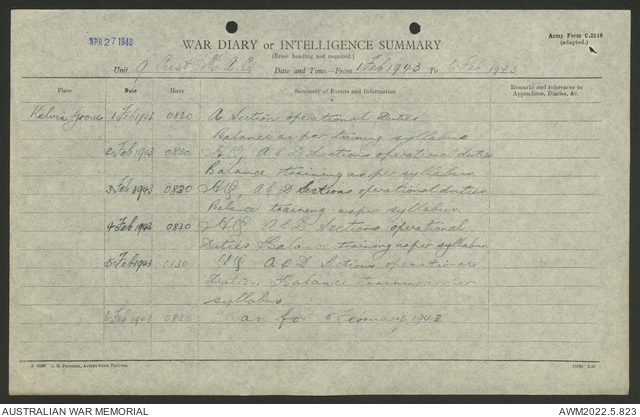 APR 27 1943
WAR DIARY or INTELLIGENCE SUMMARY
(Erase heading not required).
Army Form C.2118
(adapted.)
Unit 9 Aust M.A.C. Date and Time.—From 1 Feb 1943 To 6 Feb 1943
Place Date Hour Summary of Events and Information Remarks and references to
Appendices, Diaries, &c.
Kelvin Grove 1 Feb 1943 0830 A Section operational Duties
Balance as per training syllabus
2 Feb 1943 0830 HQ, A & D Sections operational duties
Balance training as per syllabus
3 Feb 1943 0830 HQ, A & D Sections operational duties
Balance training as per syllabus.
4 Feb 1943 0830 HQ A & D Sections operational
Duties Balance training as per syllabus
5 Feb 1943 0830 HQ A & D Sections operational
Duties Balance training as per
syllabus
6 Feb 1943 0830 as for 5 February 1943
AUSTRALIAN WAR MEMORIAL
AWM2022.5.823